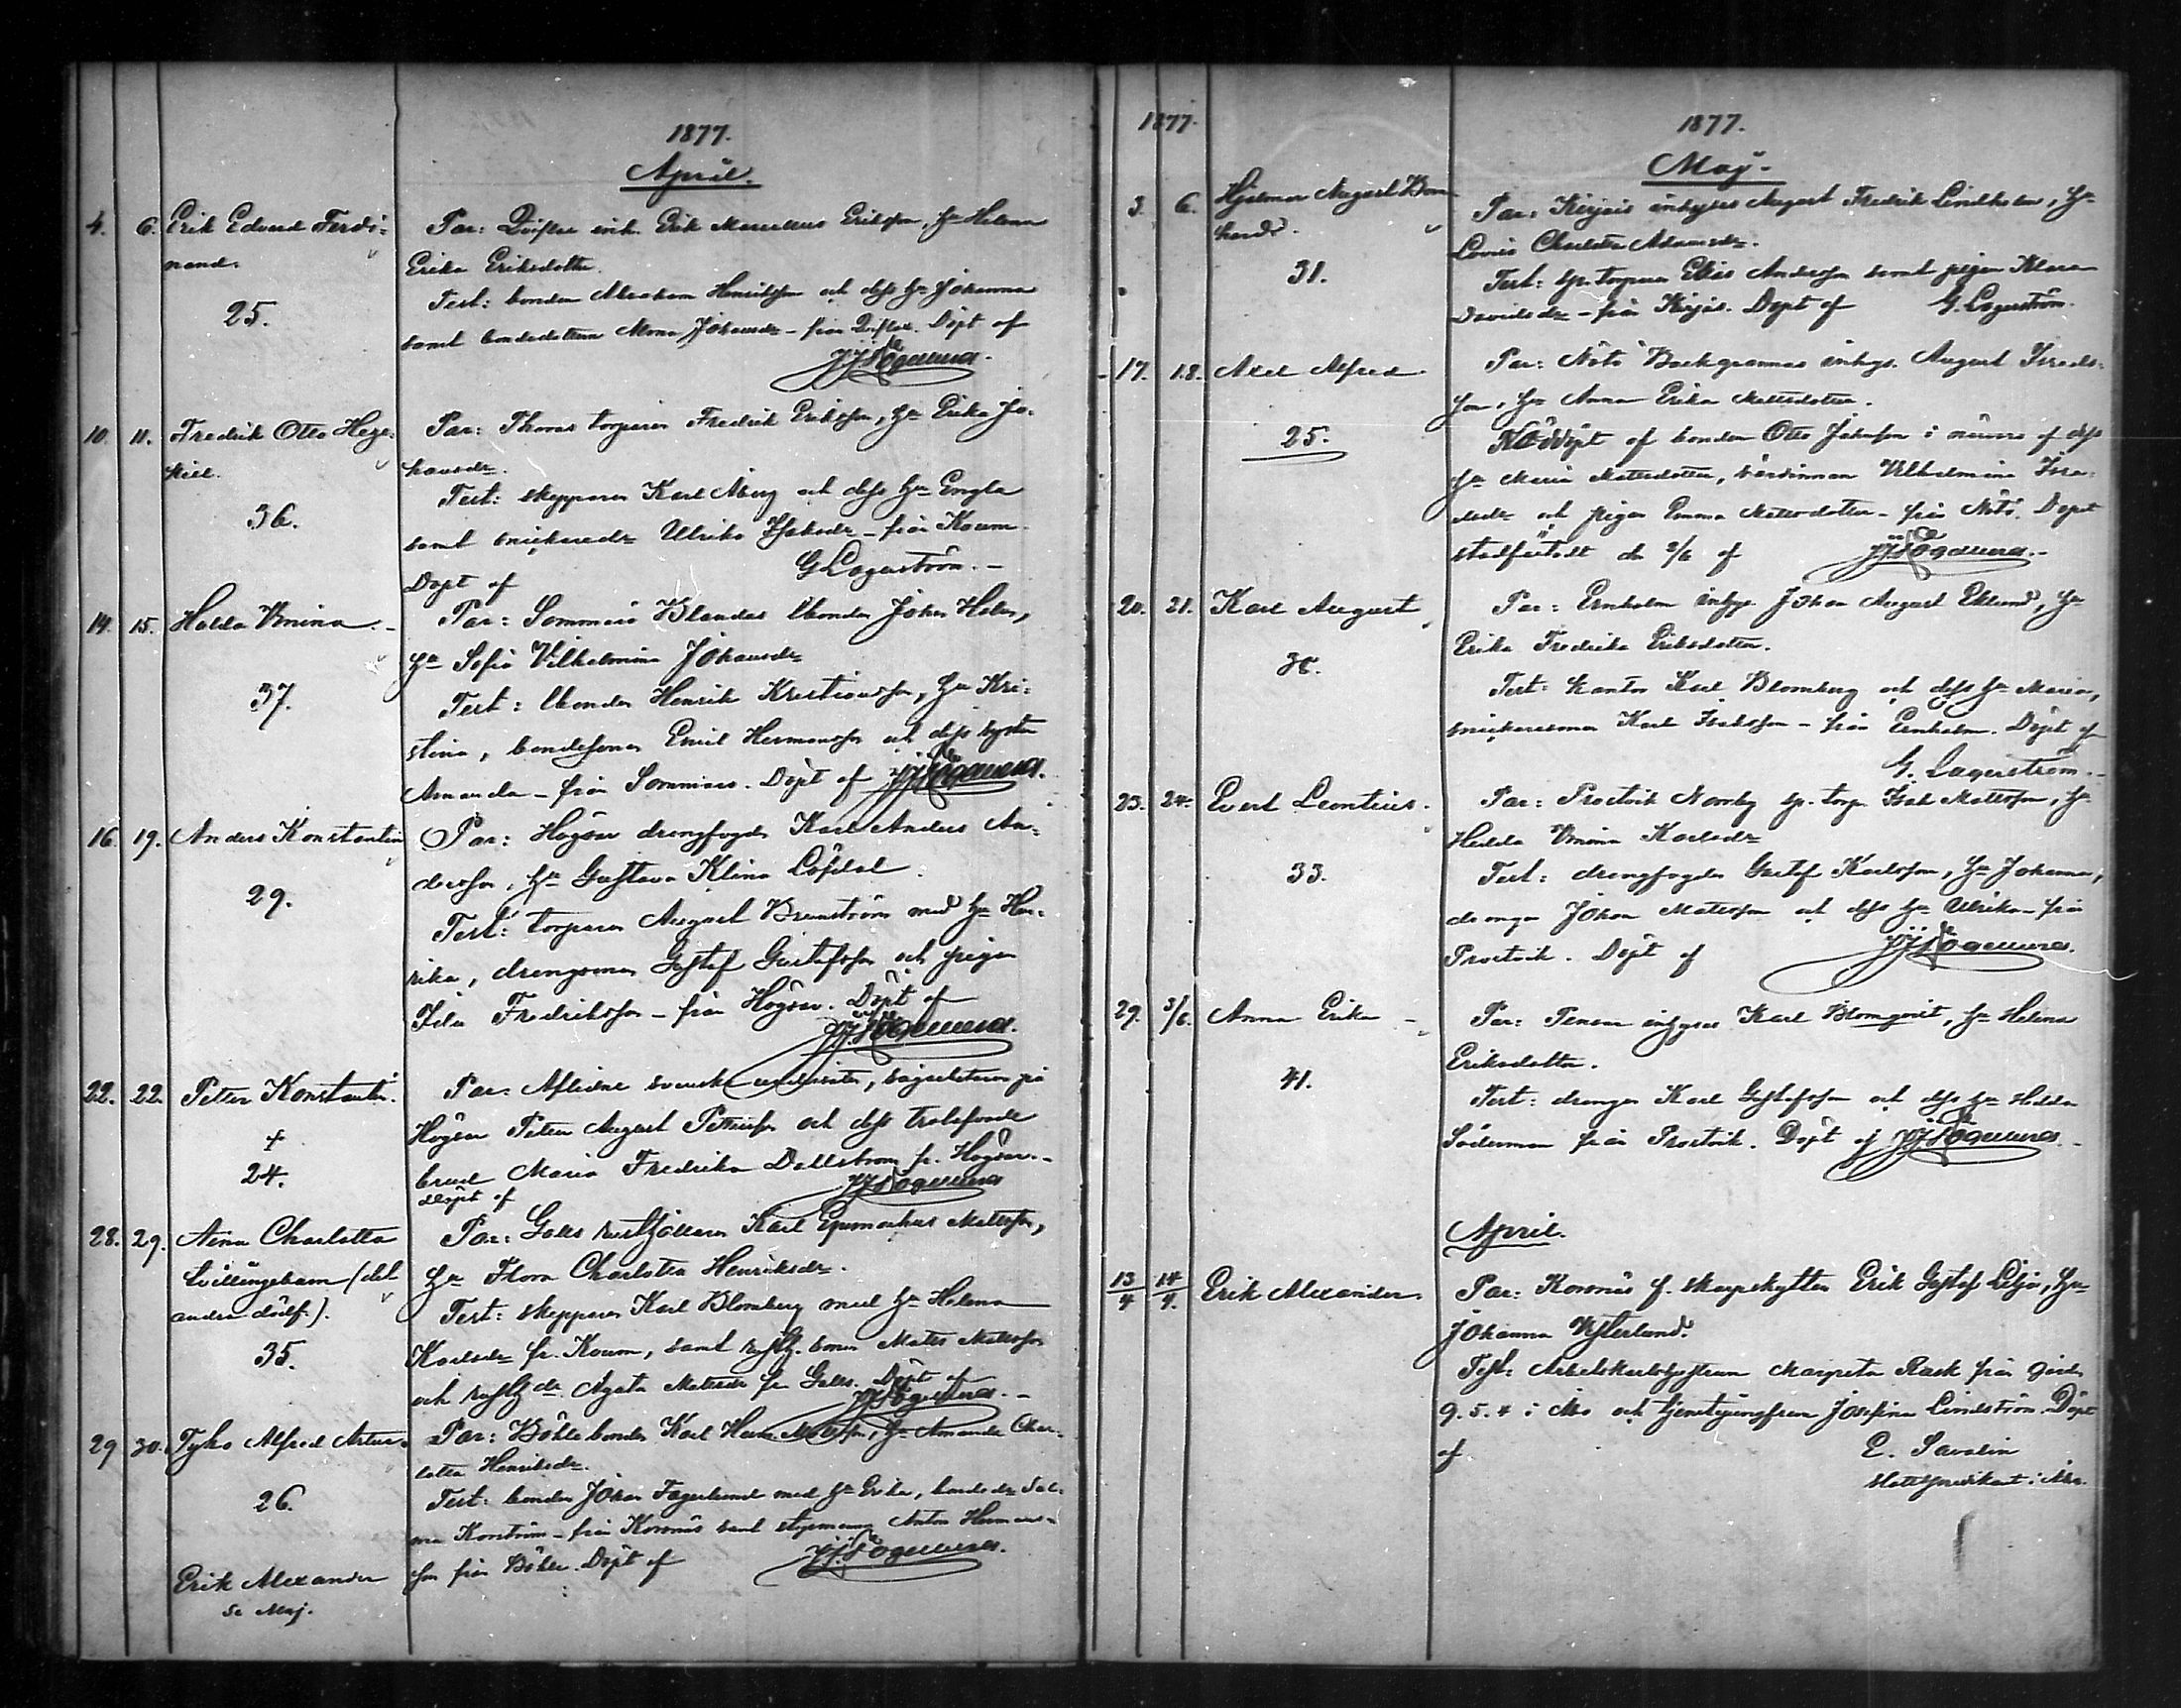 1877.
April.
4. 6. Erik Edvard Ferdi-
nand.
25.
Par: inh. Erik Eriksson, hu Helena
Erika Eriksdotter.
Test: bonden Abraham Henriksson och dess hu Johanna
samt bondedottren Johansdr - från Döpt af
10. 11. Fredrik Otto Heze-
kiel.
36.
Par: Thoras torparen Fredrik Eriksson, hu Erika Jo-
hansdr.
Test: skepparen Karl Åberg och dess hu Engla
samt snickaredr Ulrika Isaksdr - från Koum.
Döpt af G Lagerström. -
14. 15. Hulda Vmina. -
37.
Par: Sommarö bonden Johan
hu Sofia Vilhelmina Johansdr
Test: bonden Henrik Kristiansson, hu Kri-
stina, bondesonen Emil Hermansson och dess syster
Amanda - från Sommarö. Döpt af
16. 19. Anders Konstantin
29.
Par: Högsar drengfogden Karl Anders An-
dersson, hu Gustava Klina Löfdal.
Test: torparen August Brunström med hu Hen-
rika, drengsonen Gustaf Gustafsson och pigan
Ida Fredriksson - från Högsar. Döpt af
22. 22. Petter Konstantin.
+
24.
Par: Aflidne svenske undersåten, på
Högsar Petter August och dess trolofvade
brud Maria Fredrika Dellström fr. Högsar. -
Döpt af
28. 29. Aina Charlotta
tvillingebarn (det
andra dödf.).
35.
Par: Galts rusthållaren Karl Epimachus Matsson,
hu Flora Charlotta Henriksdr.
Test: skepparen Karl Blomberg med hu Helena
Karlsdr fr. Koum, samt rusth. sonen Mats Matsson
och rusth. dr. Agata Matsdr fr Galts. Döpt af
29 30. Tyko Alfred Artur.
26.
Par: Böhle bonden Karl Matsson, hu Amanda Char-
lotta Henriksdr.
Test: bonden Johan Fagerlund med hu Erika, bondedr Sel-
ma Korström - från Kornäs samt Anton Hermans-
son från Böhle. Döpt af
Erik Alexander
se Maj.
1877.
1877.
Maj.
3. 6. Hjalmar August Bern
hard.
31.
Par: Kirjais inhyses August Fredrik Lindholm, hu
Lovisa Charlotta Adamsdr.
Test: sp. torparen Elis Andersson samt pigan Klara
Davidsdr - från Kirjais. Döpt af G. Lagerström.
17. 18. Axel Alfred.
25.
Par: Nötö Backgrannas inhys. August Isreds-
son, hu Anna Erika Mattsdotter.
Nöddöpt af bonden Otto Johansson i närvaro af dess
hu Maria Mattsdotter, värdinnan Vilhelmina
och pigan Emma Mattsdotter - från Nötö. Dopet
stadfästadt den 2/6 af
20. 21. Karl August
Par: Ernholm inhys. Johan August Eklund, hu
Erika Fredrika Eriksdotter.
Test: kantor Karl Blomberg och dess hu Maria,
snickaresonen Karl Isaksson - från Ernholm. Döpt af
G. Lagerström. -
23. 24. Evert Leontius.
33.
Par: Prostvik Norrby sp. torp. Isak Mattsson, hu
Hedda Vmina Karlsdr
Test: drengfogden Gustaf Karlsson, hu Johanna,
drengen Johan Matsson och dess hu Ulrika - från
Prostvik. Döpt af
29. 3/6. Anna Erika -
41.
Par: inhyses Karl Blomqvist, hu Helena
Eriksdotter.
Test: drengen Karl Gustafsson och dess hu Hilda
Söderman från Prostvik. Döpt af
April.
13/4 14/4. Erik Alexander.
Par: Kornäs f. skarpskytten Erik Gustaf Lilja, hu
Johanna Vesterlund.
Test: Arbetskarlshustrun Margreta Rask från gård
9. 5. 4 i Åbo och tjenstejungfrun Josefina Lindström. Döpt
af E. Savalin